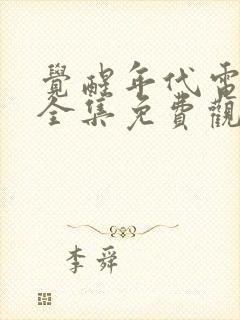 覺醒年代電
全集免費觀
李舜